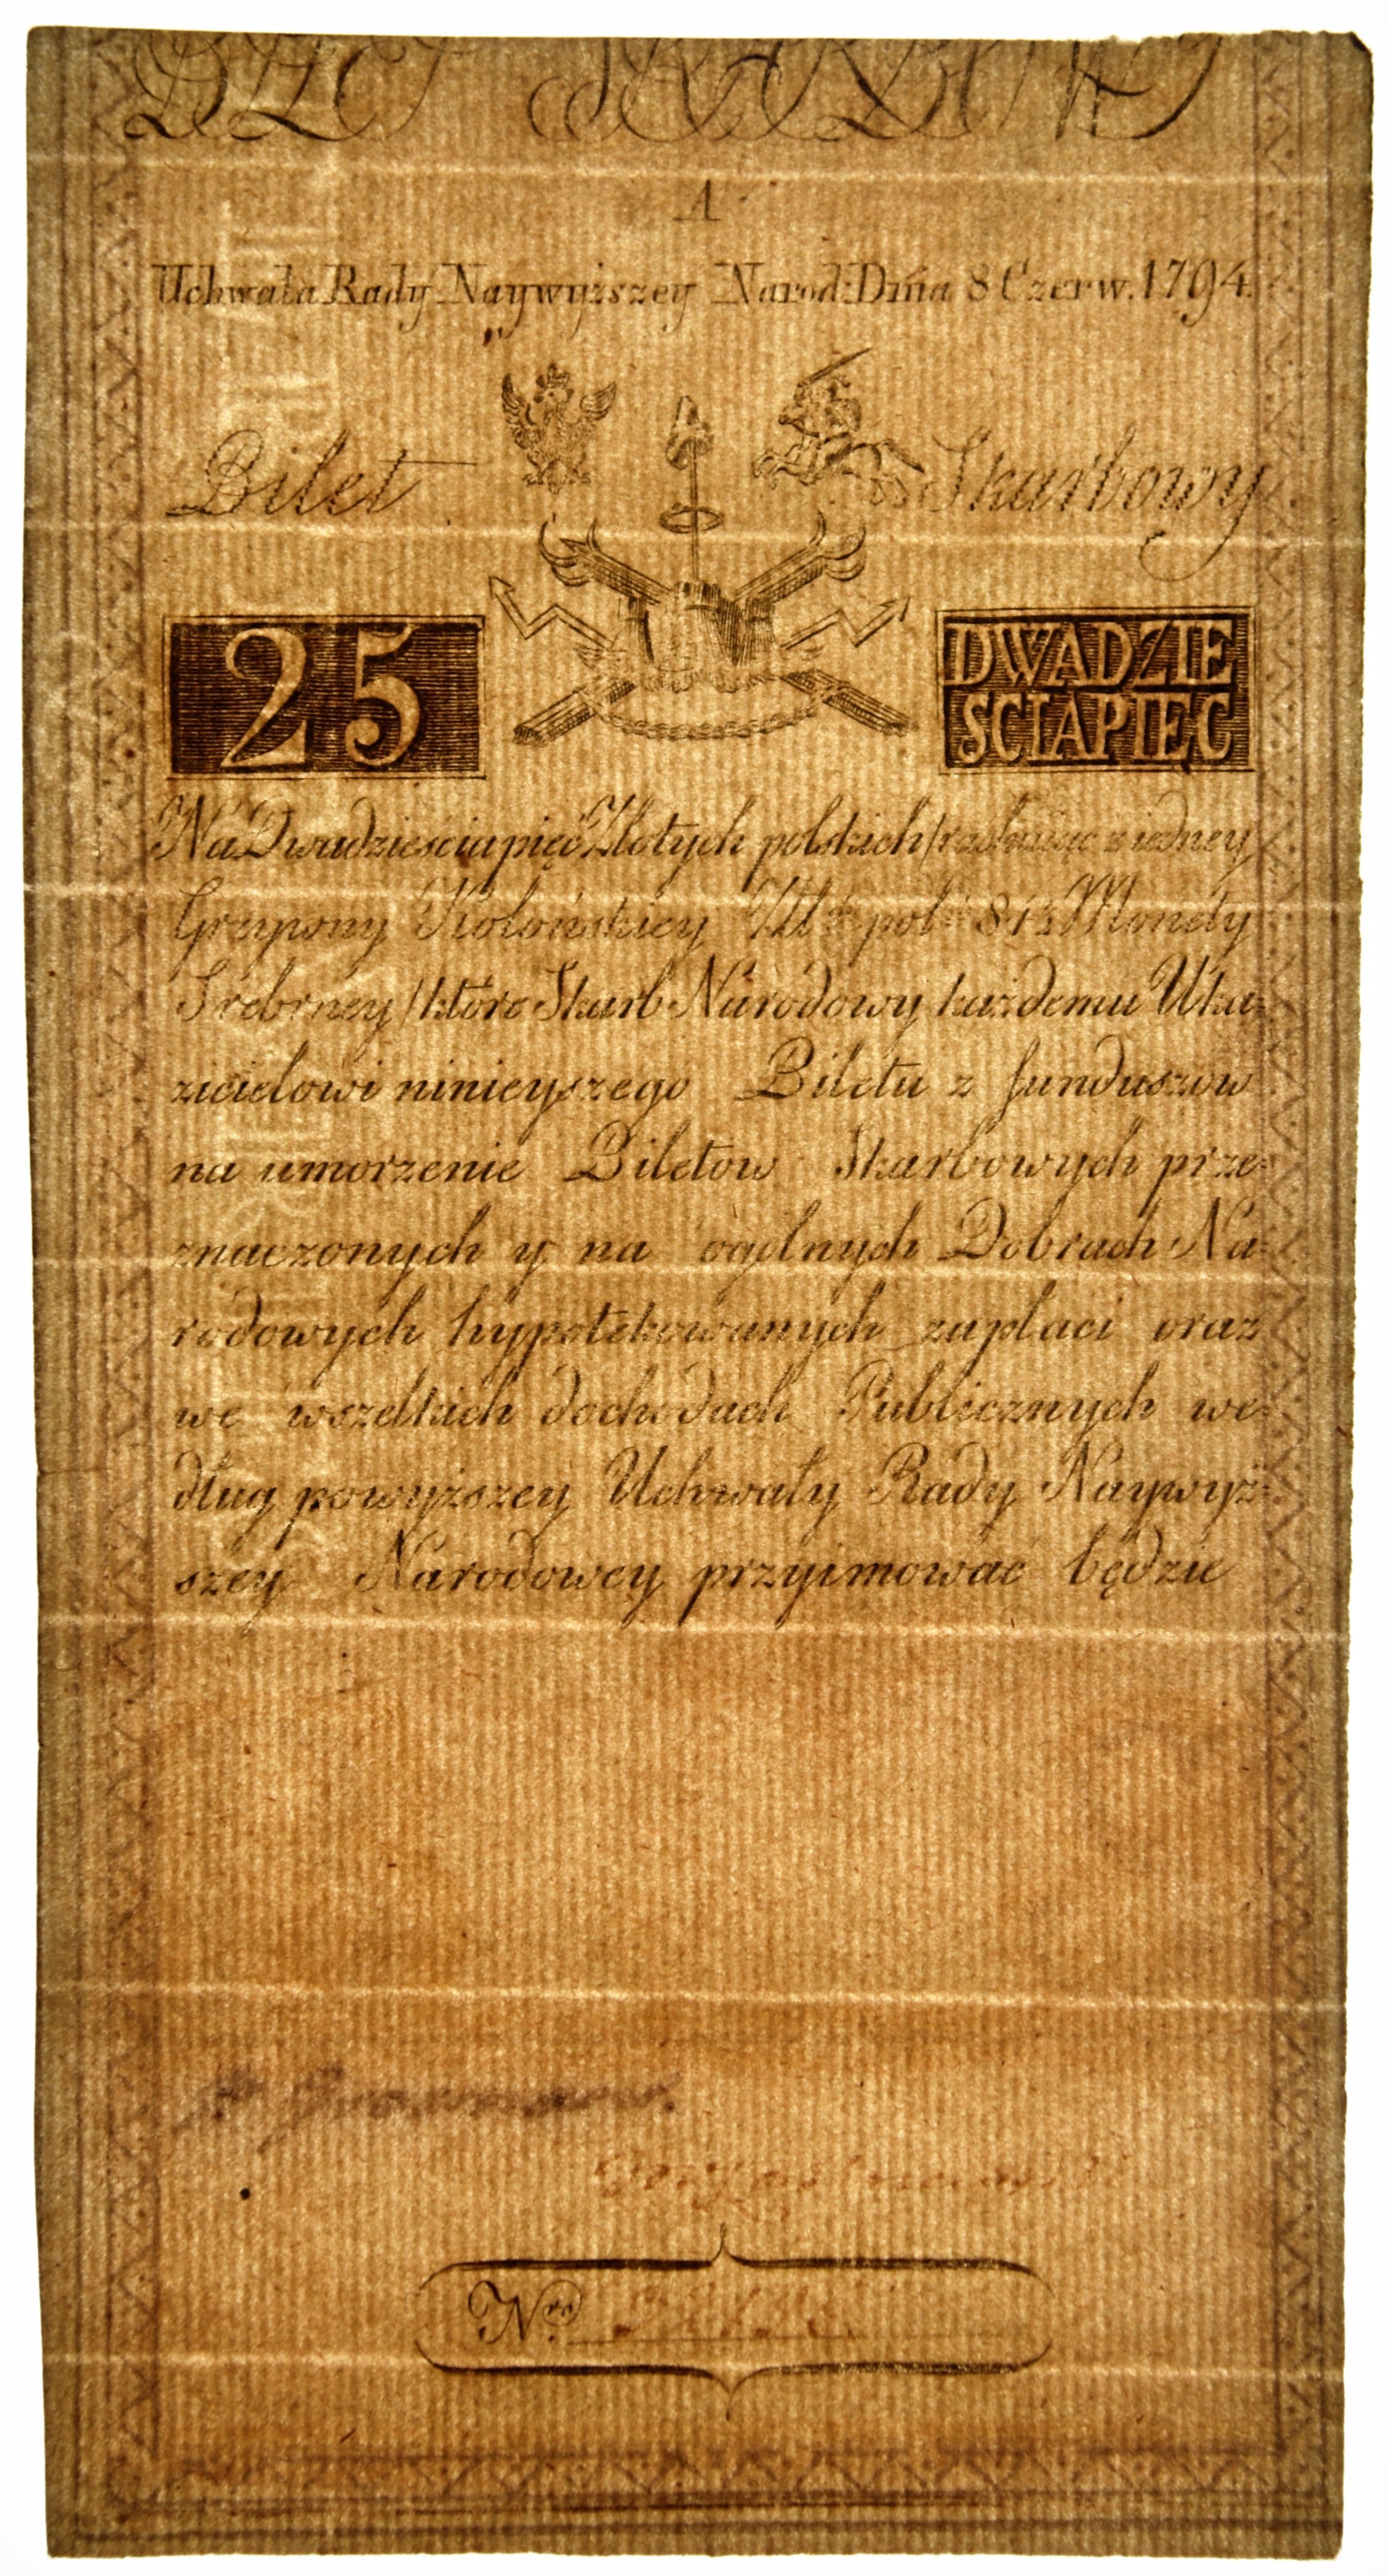 BILET SKARBOWY
A
Uchwała Rady Naywyższey Narod: Dnia 8 Czerw. 1794.
Bilet Skarbowy
25
DWADZIE
SCIAPIĘC
Na Dwadzieścia pięć Złotych polskich /rachuiąc z iedney
Grzywny Kolońskiey Złł: pol: 84½ Monety
Srebrney/ które Skarb Narodowy każdemu Uka=
zicielowi ninieyszego Biletu z funduszow
na umorzenie Biletow Skarbowych prze=
znaczonych y na ogolnych Dobrach Na=
rodowych hypotekowanych zapłaci oraz
we wszelkich dochodach Publicznych we=
dług powyższey Uchwały Rady Naywyż=
szey Narodowey przyimować będzie
Nro